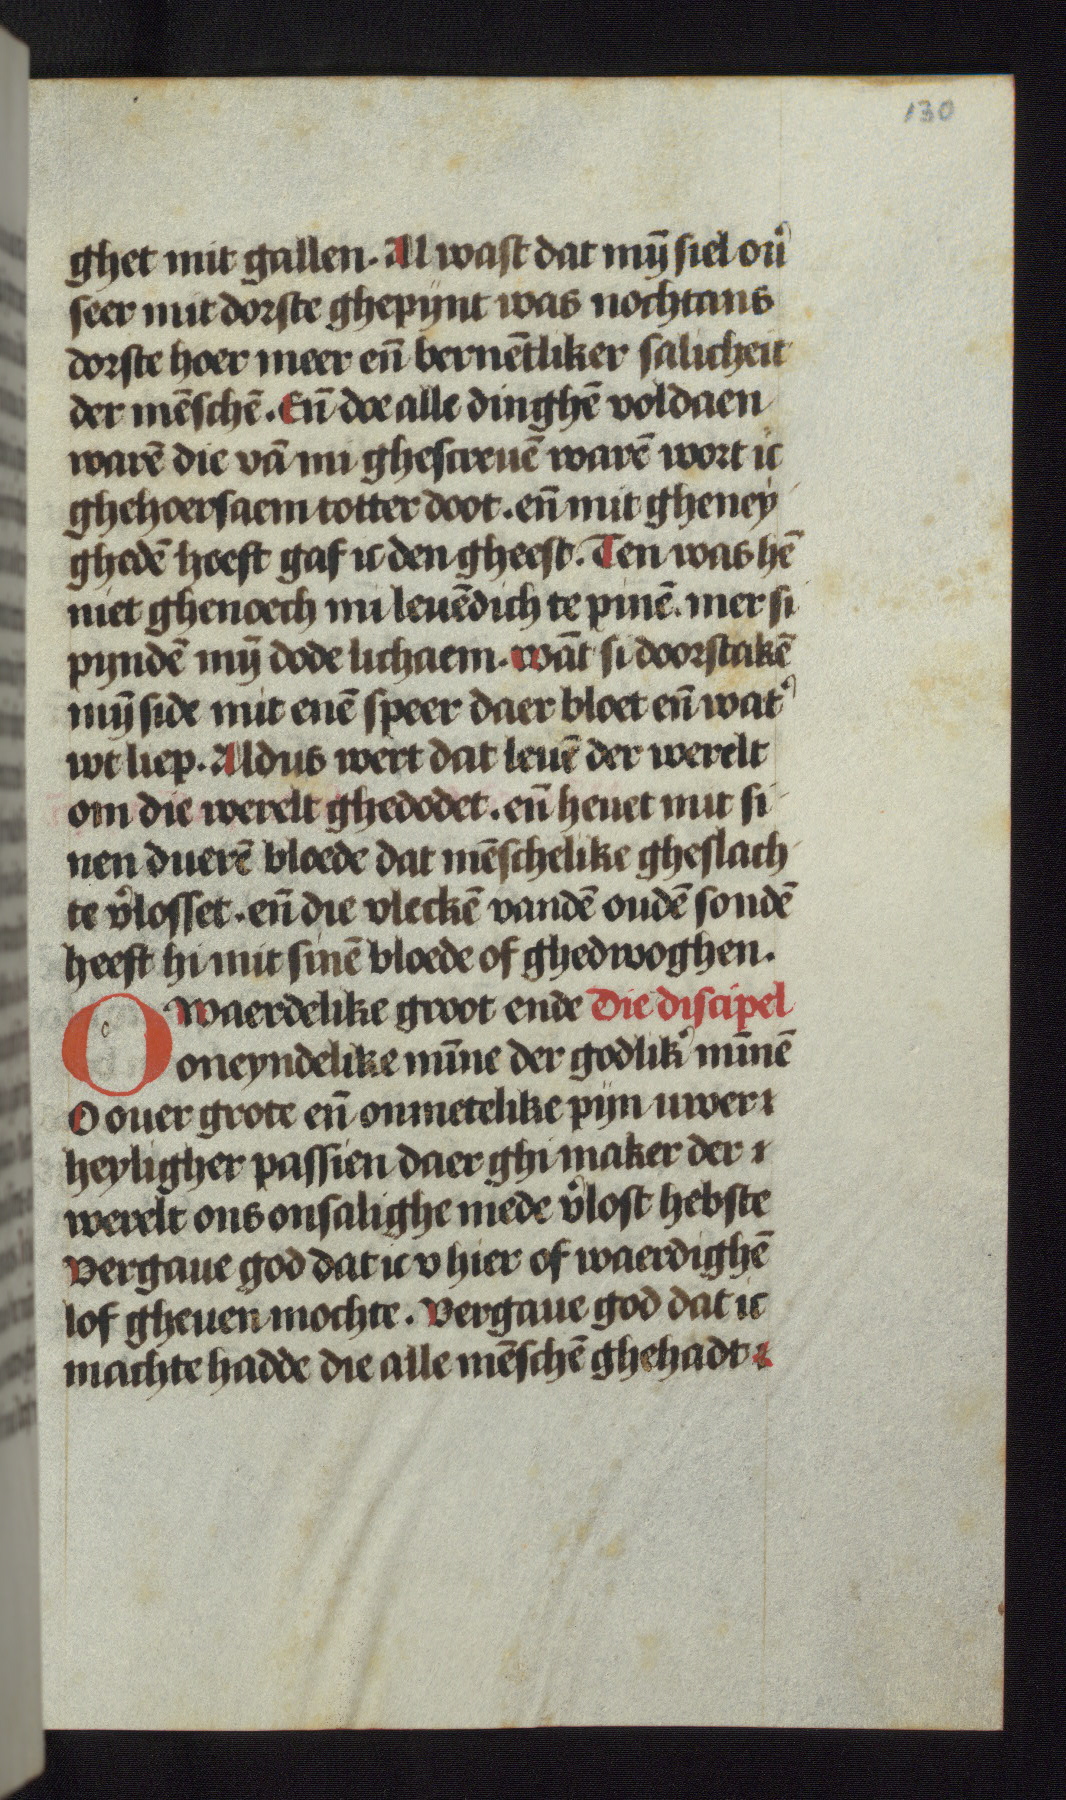 130
ghet mit gallen. Al wast dat mȳ siel ouͤ
seer mit dorste ghepijnt was nochtans
dorste hoer meer en̄ bernētliker salicheit
der mēschē. En̄ doe alle dinghē voldaen
warē die vā mi ghescreuē warē wort ic
ghehoersaem totter doot. en̄ mit gheney
ghedē hoeft gaf ic den gheest. Ten was hē
niet ghenoech mi leuēdich te pinē. mer si
pijndē mȳ dode lichaem. wāt si doorstakē
mȳ side mit enē speer daer bloet en̄ wat᾿
wt liep. Aldus wert dat leuē der werelt
om die werelt ghedodet. en̄ heuet mit si
nen duerē bloede dat mēschelike gheslach
te v᾿losset. en̄ die vleckē vandē oudē sondē
heeft hi mit sinē bloede of ghedwoghen.
O waerdelike groot ende Die discipel
oneyndelike mīne der godlik᾿ mīnē
O ouer grote en̄ onmetelike pijn uwer
heyligher passien daer ghi maker der
werelt ons onsalighe mede v᾿lost hebste
Vergaue god dat ic v hier of waerdighē
lof gheuen mochte. Vergaue god dat ic
machte hadde die alle mēschē ghehadt